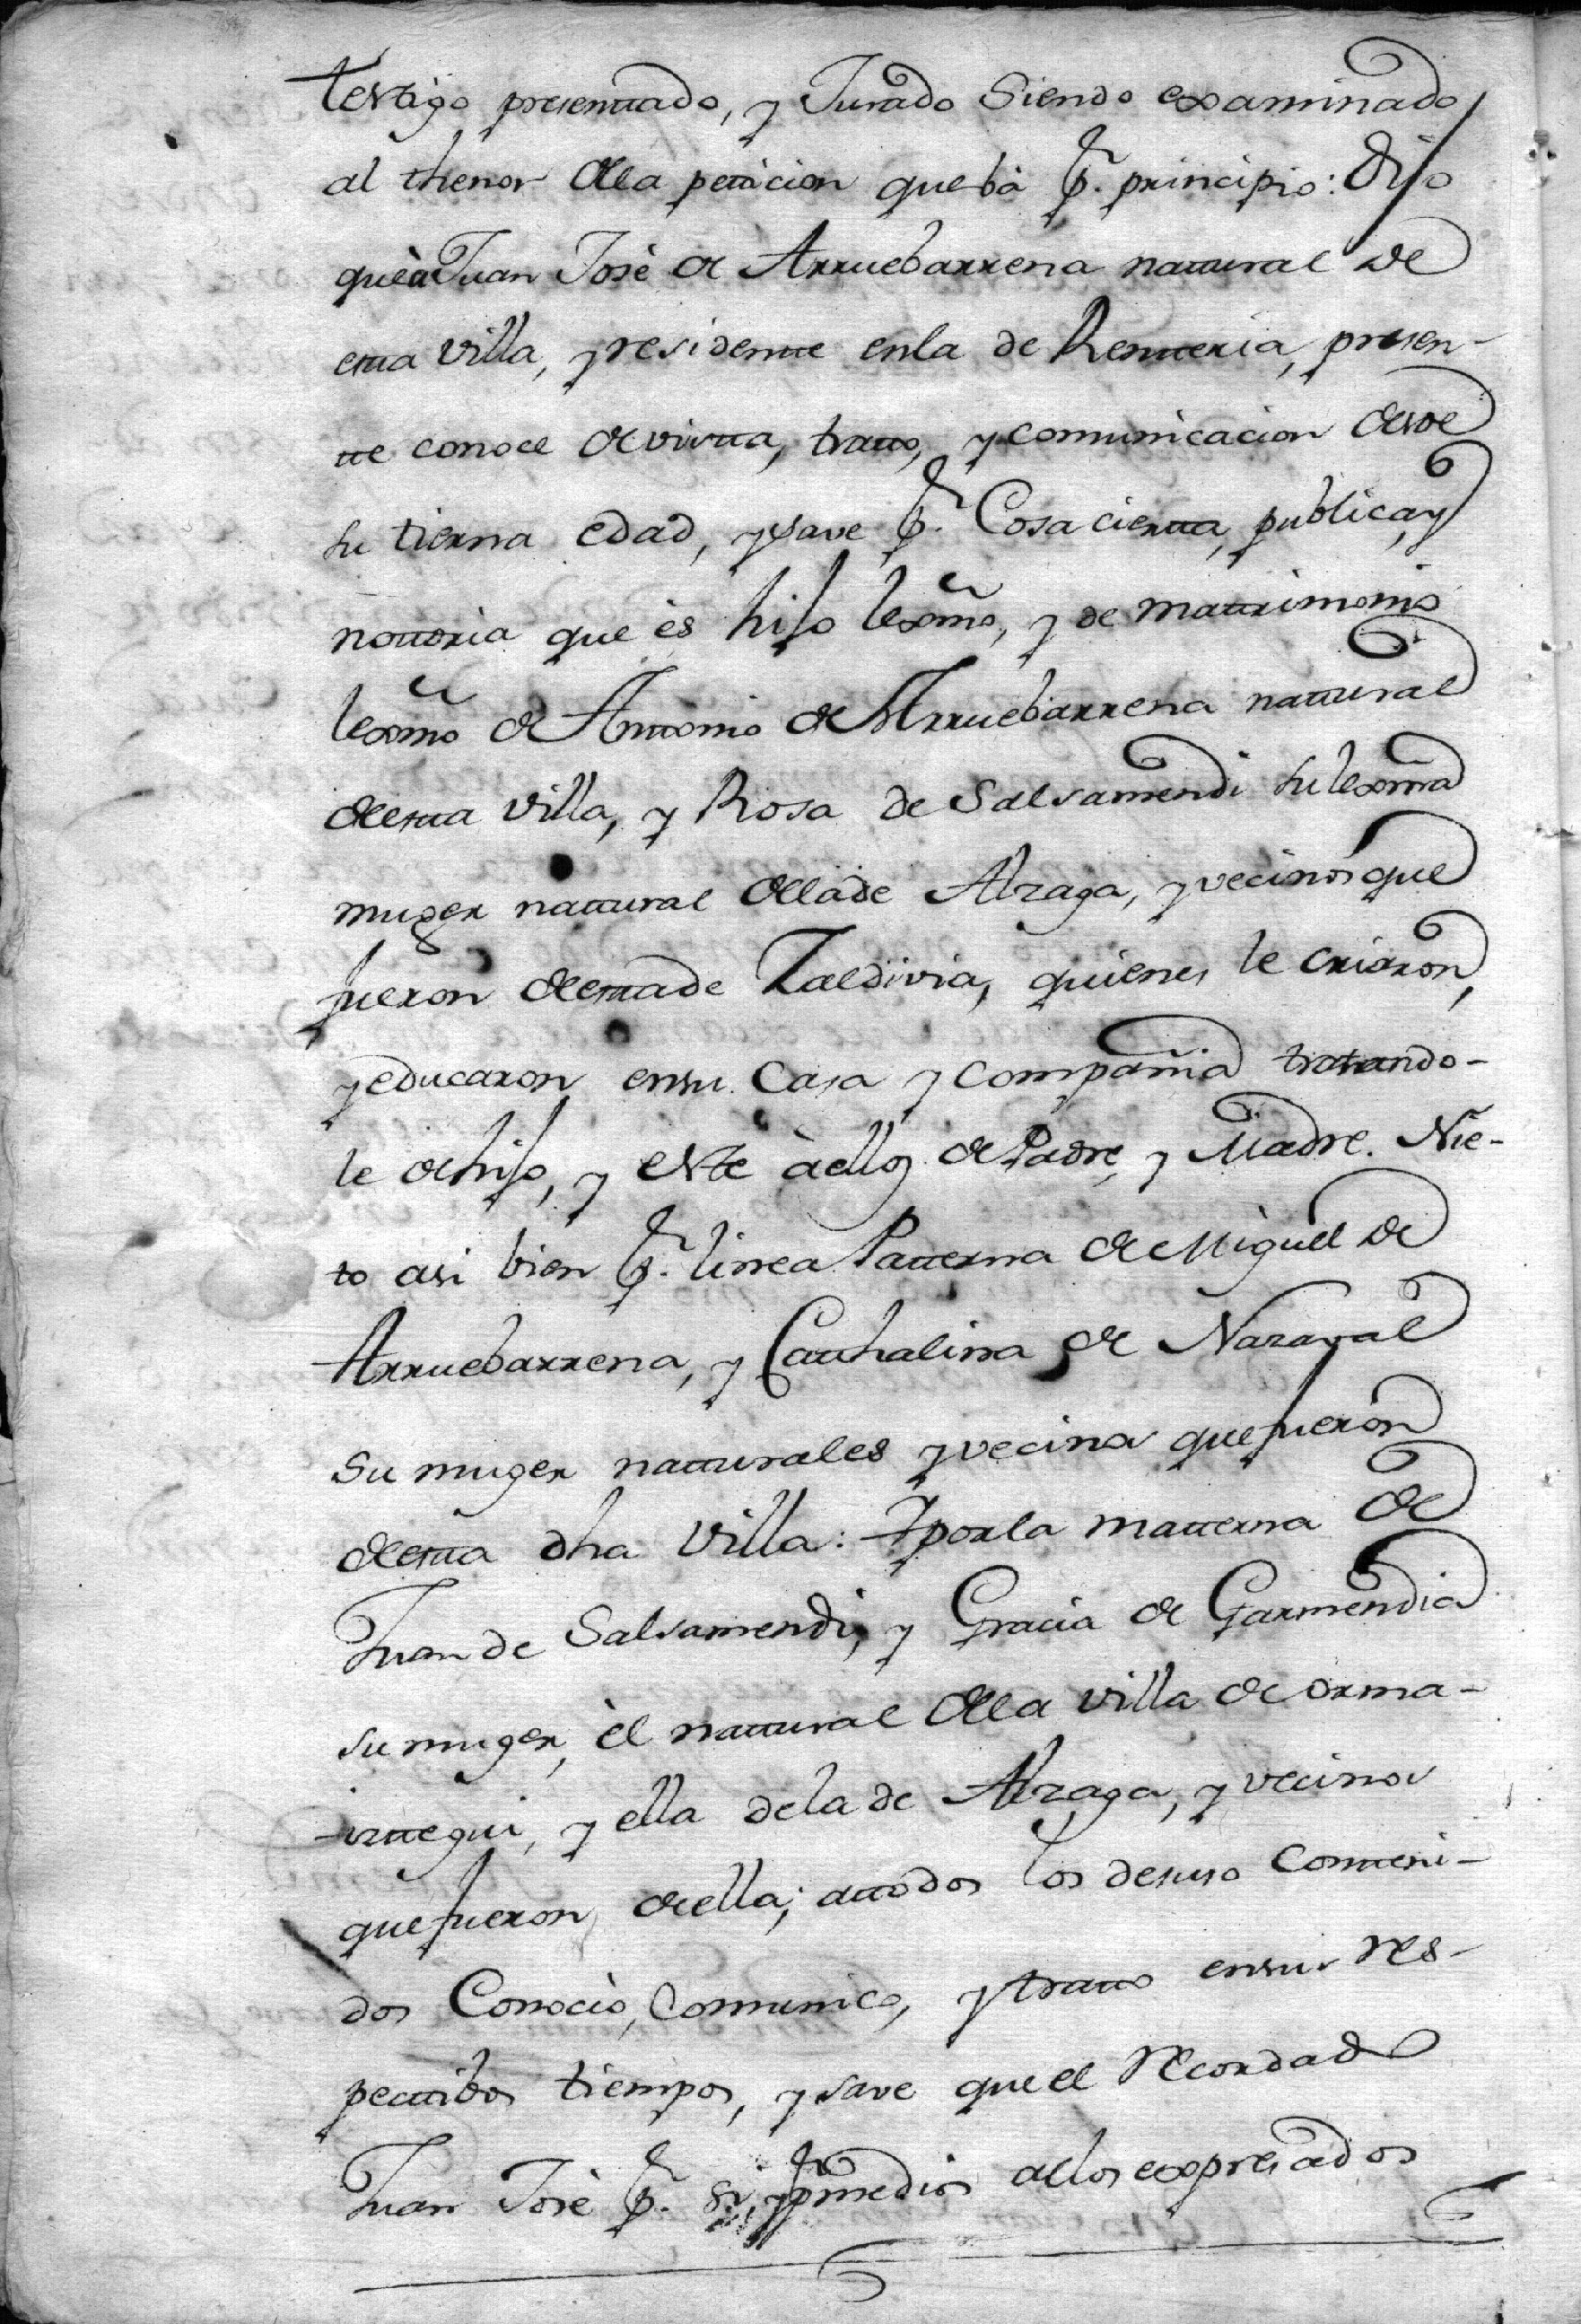 testigo presenttado, y Jurado Siendo examinado
al thenor dela petticion que bà pr. principio: Dijo
que à Juan Josè de Arruebarrena nattural de
estta villa, y residentte enla de Rentteria, presen-
tte conoce de vistta, tratto, y comunicacion desde
su tierna edad, y save pr. Cosa ciertta, publica, y
nottoria que ès hijo lexmo, y de mattrimonio
lexmo de Anttonio de Arruebarrena nattural
de estta villa, y Rosa de Salsamendi su lexma
muger nattural dela de Alzaga, y vecinos que
fueron de estta de Zaldivia, quienes le criaron,
y educaron en su Casa y compañia tratando-
le de hijo, y este à ellos de Padre, y Madre. Nie-
to asi bien pr. linea Patterna de Miguel de
Arruebarrena, y Catthalina de Nazaval
su muger natturales y vecinos que fueron
de estta dha Villa: Y por la matterna de
Juan de Salsamendi, y Gracia de Garmendia
su muger, èl nattural dela villa de orma-
izttegui, y ella dela de Alzaga, y vecinos
que fueron de ella; a ttodos los desuso Contteni-
dos Conociò, Comunico, y tratto en sus res-
pecttibos tiempos, y save que el recordado
Juan Josè pr. si, y pr. medio de los expresados